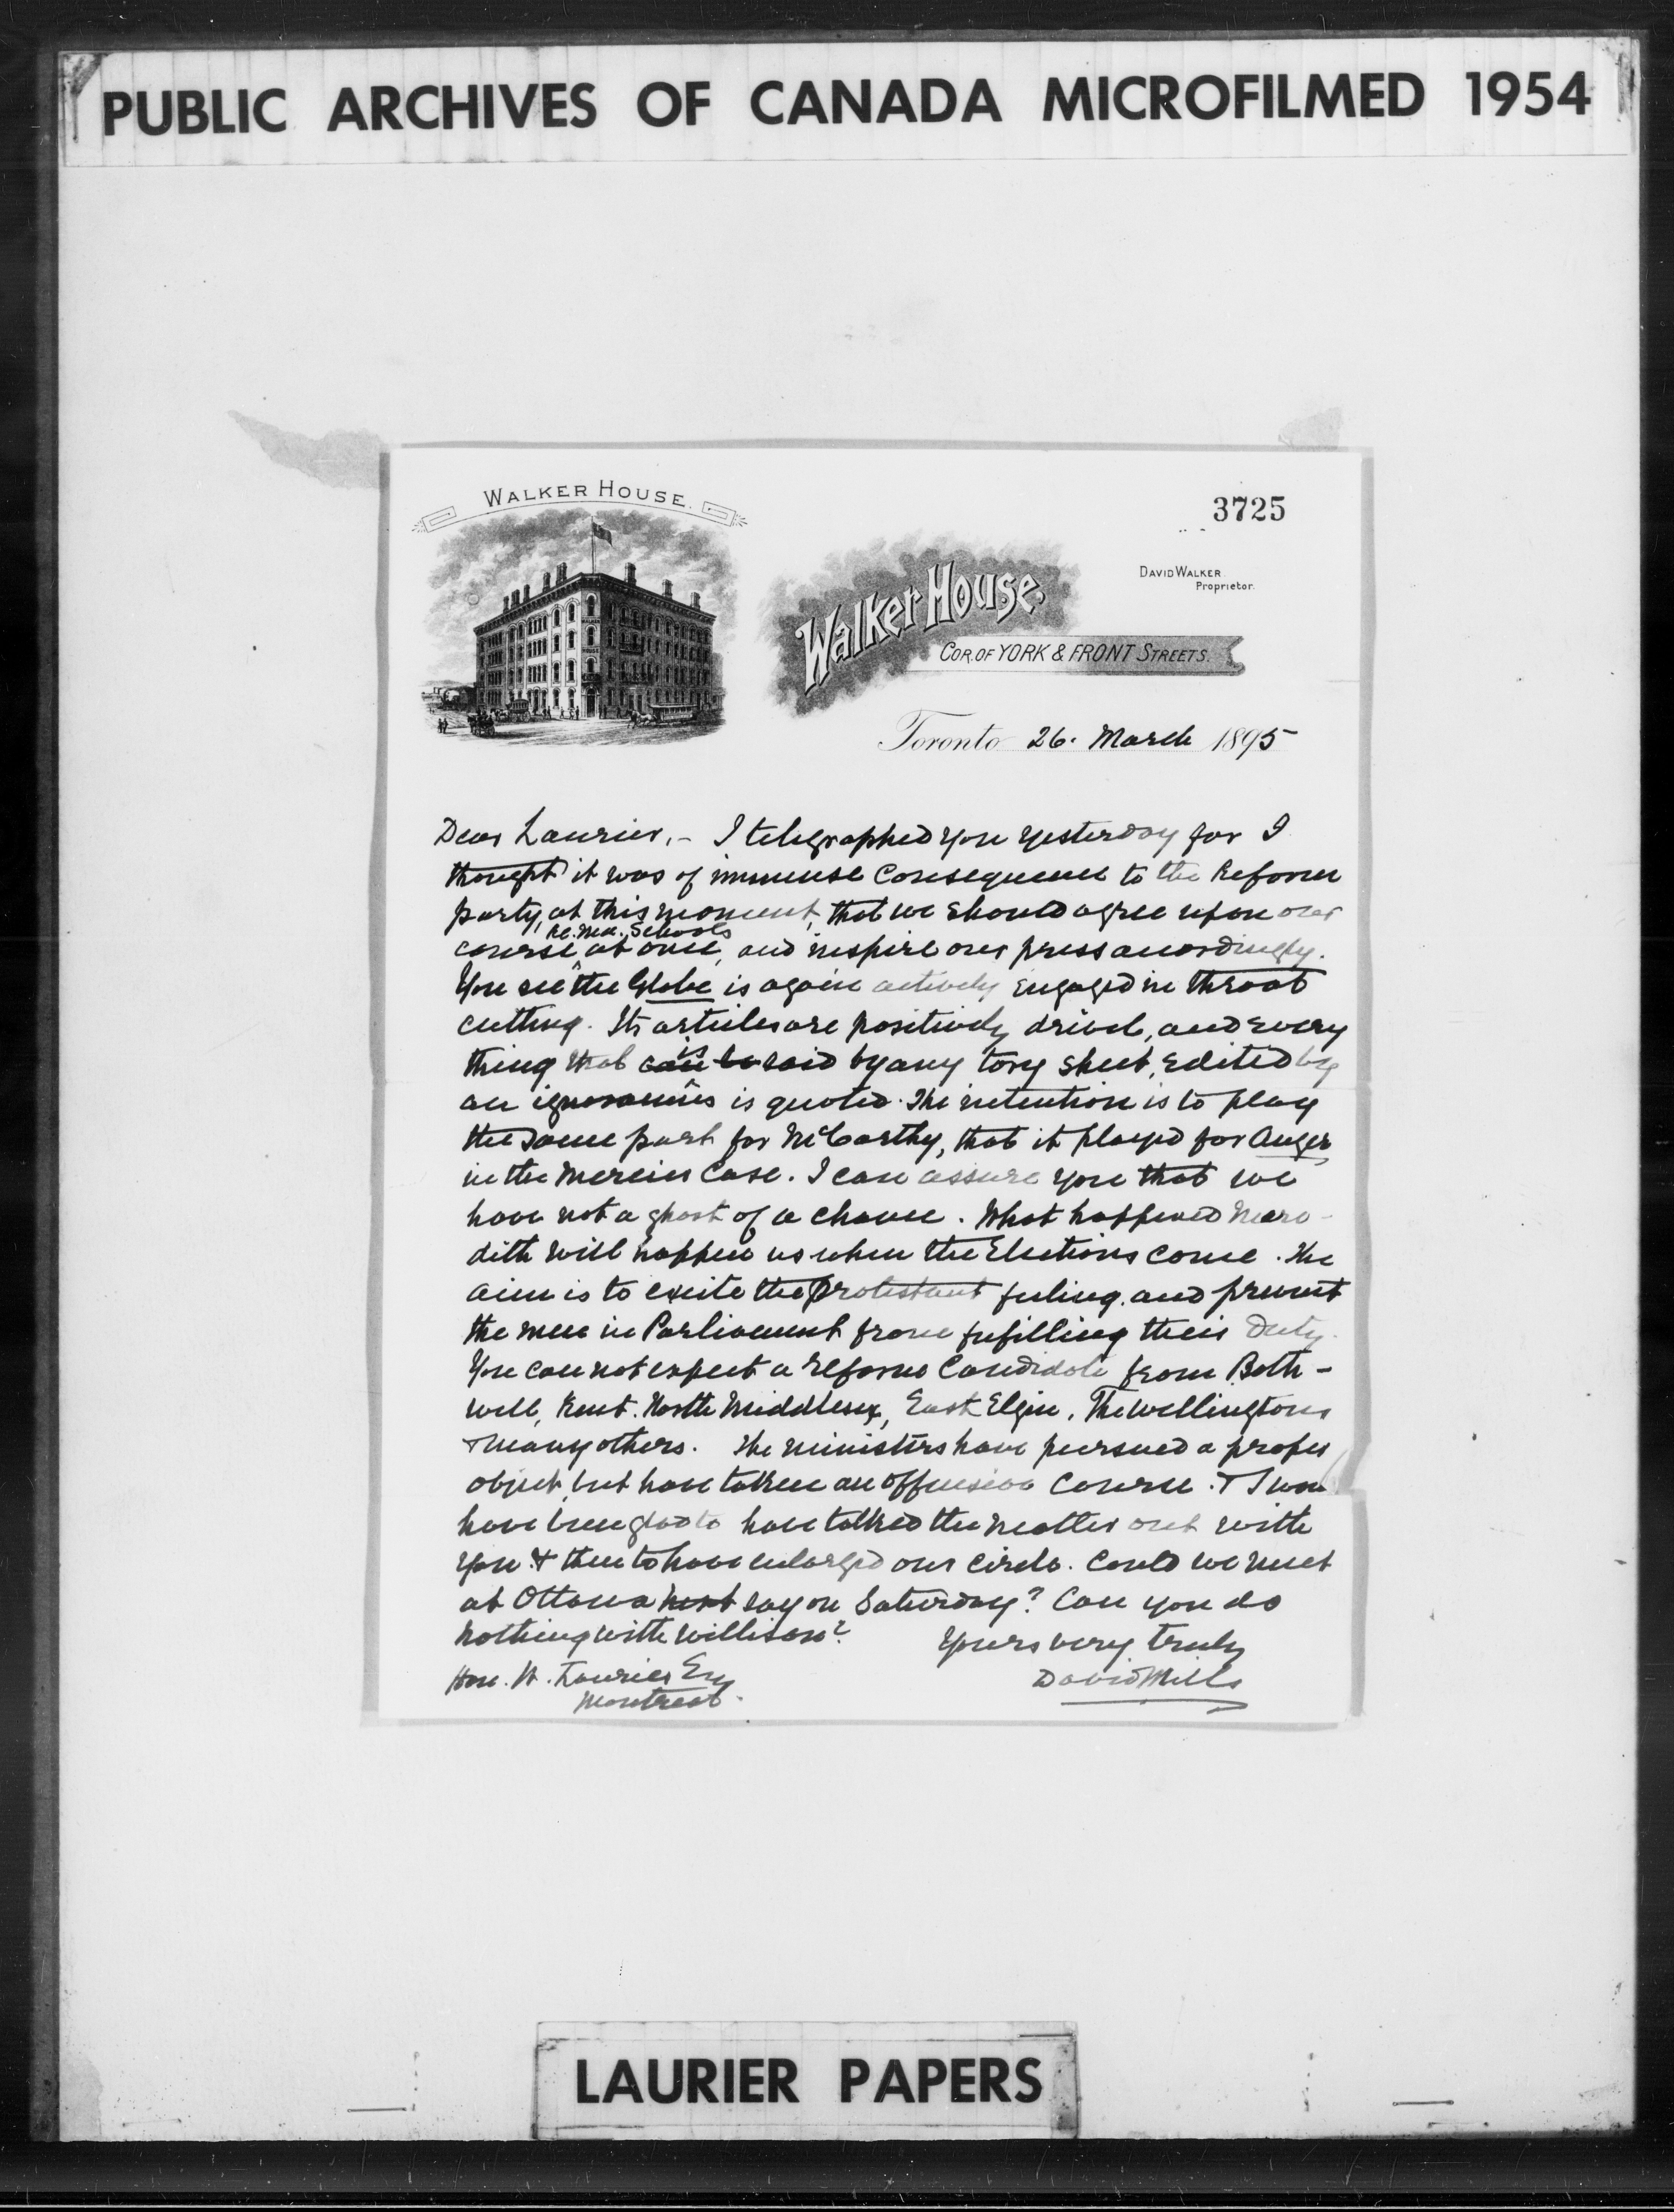 PUBLIC ARCHIVES OF CANADA MICROFILMED 1954
WALKER HOUSE.
3725
DAVID WALKER.
Proprietor.
Walker House.
COR. OF YORK & FRONT STREETS.
Toronto 26. March 1895
Dear Laurier, - I telegraphed you yesterday for I
thought it was of immense consequence to the Reform
party, at this moment, that we should agree upon our
re. Man. Schools
course at once, and inspire our press accordingly.
You see the Globe is again actively engaged in throat
cutting. Its articles are positively drivel, and every
is
thing that can be said by any tory sheet, edited by
an ignoramus is quoted. The intention is to play
the same part for McCarthy, that it played for Anger
in the Mercier Case. I can assure you that we
have not a ghost of a chance. What happened Mere-
dith will happen us when the Elections come. The
aim is to excite the Protestant feeling. and prevent
the men in Parliament from fufilling their duty.
You can not expect a Reform Candidate from Both-
well, Kent. North Middlesex, East Elgin. The Wellingtons
& many others. The ministers have pursued a proper
object, but have taken an offensive course. & I
have been glad to have talked the matter out with
you & then to have enlarged our circle. Could we meet
at Ottawa next say on Saturday? Can you do
nothing with Willison?
Yours very truly
David Mills
Hon. W. Laurier Esq
Montreal.
LAURIER PAPERS